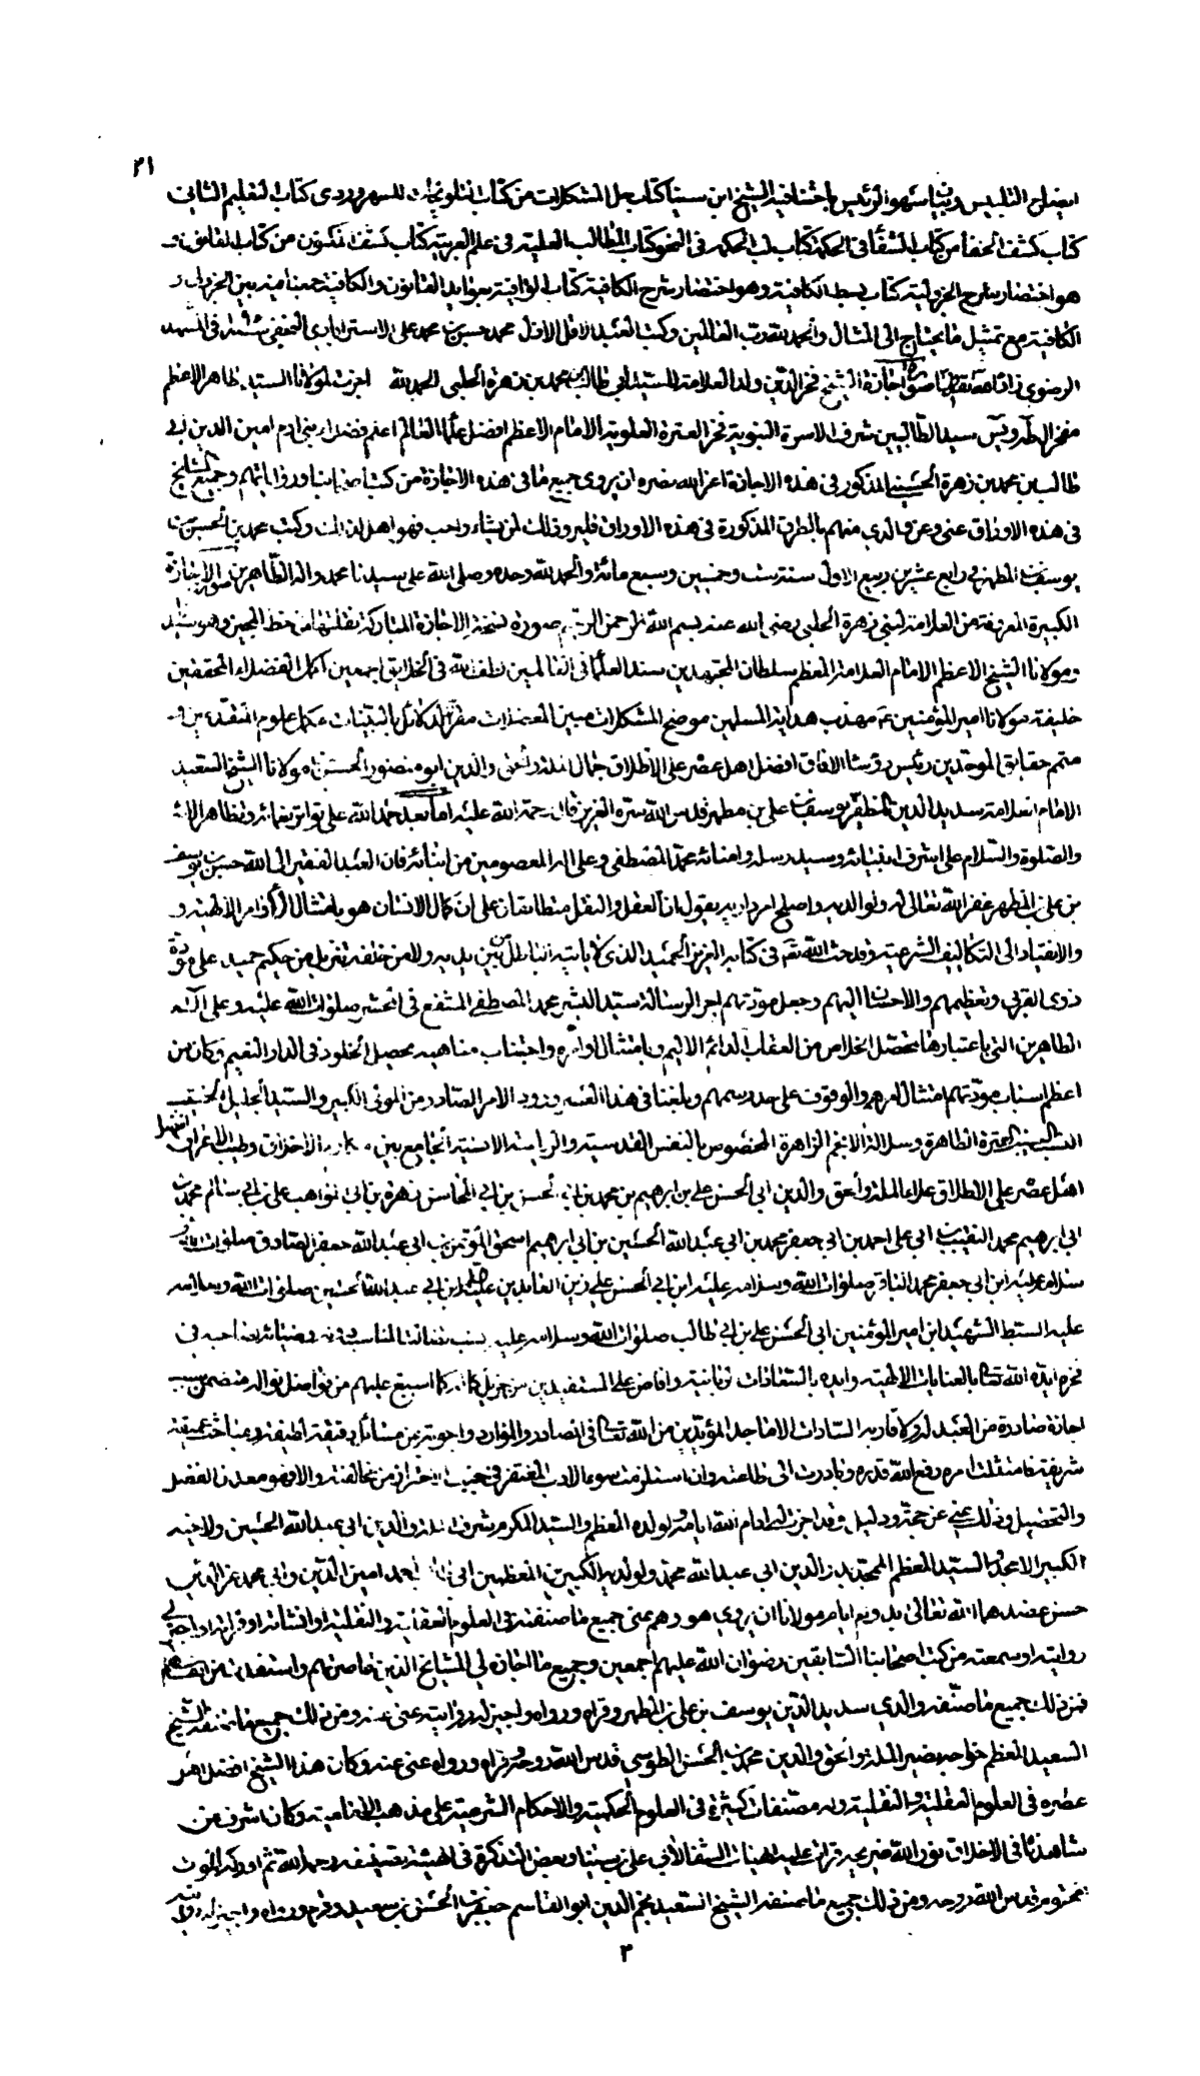 ٢١
ايضاح التلبيس وبيان سهو الرئيس باحثنا فيه الشيخ ابن سينا كتاب حل المشكلات من كتاب التلويحات للسهروردى كتاب التعليم الثانى
كتاب كشف الخفا من كتاب الشفا فى الحكمة كتاب لب الحكمة فى النحو كتاب المطالب العلية فى علم العربية كتاب كشف المكنون من كتاب القانون و
هو اختصار شرح الجزولية كتاب بسط الكافية وهو اختصار شرح الكافية كتاب الوافية بفوايد القانون والكافية جمعنا فيه بين الجزولية و
الكافية مع تمثيل ما يحتاج الى المثال والحمد لله رب العالمين وكتب العبد الاقل الاذل محمد حسين بن محمد على الاسترابادى النجفى فى المشهد
الرضوى صورة اجازة الشيخ فخر الدين ولد العلامة للسيد ابى طالب محمد بن زهرة الحلبى الحمد لله اجزت لمولانا السيد طاهر الاعظم
مفخر ال طه ويس سيد الطالبيين شرف الاسرة النبوية فخر العترة العلوية الامام الاعظم افضل علماء العالم اعلم فضلاء بنى ادم امين الدين ابى
طالب بن محمد بن زهرة الحسينى المذكور فى هذه الاجازة اعز الله نصره ان يروى جميع ما فى هذه الاجازة من كتب اصحابنا ورواياتهم وجميع المشايخ
فى هذه الاوراق عنى وعن والدى منهم بالطرق المذكورة فى هذه الاوراق فليرو ذلك لمن يشاء واحب فهو اهل لذلك وكتب محمد بن الحسن بن
يوسف بن المطهر فى رابع عشرين ربيع الاول سنة ست وخمسين وسبع مائة والحمد لله وحده وصلى الله على سيدنا محمد واله الطاهرين صورة الاجازة
الكبيرة المعروفة من العلامة لبنى زهرة الحلبى رضى الله عنه بسم الله الرحمن الرحيم صورة نسخة الاجازة المباركة نقلتها من خط المجيز وهو سيدنا
ومولانا الشيخ الاعظم الامام العلامة المعظم سلطان المجتهدين سند العلماء فى العالمين لطف الله فى الخلايق اجمعين اكمل الفضلاء المحققين
خليفة مولانا امير المؤمنين مهذب هداية المسلمين موضح المشكلات مبين المعضلات مقرر الدلائل بالبينات مكمل علوم المتقدمين و
متمم حقايق الموحدين رئيس رؤسا الافاق افضل اهل عصره على الاطلاق جمال الملة والحق والدين ابو منصور الحسن بن مولانا الشيخ السعيد
الامام العلامة سديد الدين ابى المظفر يوسف بن على بن مطهر قدس الله سره العزيز قال رحمة الله عليه اما بعد حمد الله على تواتر نعمائه وتظاهر الائه
والصلوة والسلام على اشرف انبيائه وسيد رسله وامنائه محمد المصطفى وعلى اله المعصومين من ابنائه فان العبد الفقير الى الله حسن بن يوسف
بن على بن المطهر غفر الله تعالى له ولوالديه واصلح امر داريه يقول ان العقل والنقل متطابقان على ان كمال الانسان هو بامتثال الاوامر الالهية و
والانقياد الى التكاليف الشرعية وقد حث الله تع فى كتابه العزيز الحميد الذى لا ياتيه الباطل من بين يديه ولا من خلفه تنزيل من حكيم حميد على مودة
ذوى القربى وتعظيمهم والاحسان اليهم وجعل مودتهم اجر الرسالة سيد البشر محمد المصطفى المشفع فى المحشر صلوات الله عليه وعلى اله
الطاهرين التى باعتبارها يحصل الخلاص من العقاب الدائم الاليم وبامتثال اوامره واجتناب مناهيه يحصل الخلود فى الدار النعيم وكان من
اعظم اسباب مودتهم امتثال امرهم والوقوف على حد رسمهم وبلغنا فى هذا العصر ورود الامر الصادر من المولى الكبير والسيد الجليل الحسيب
النسيب العترة الطاهرة وسلالة الانجم الزاهرة المخصوص بالنفس القدسية والرياسة الانسية الجامع بين مكارم الاخلاق وطيب الاعراق افضل
اهل عصره على الاطلاق علاء الملة والحق والدين ابى الحسن على بن ابراهيم بن محمد بن ابى الحسن بن ابى المحاسن زهرة بن ابى المواهب على بن ابى سالم محمد بن
ابى ابراهيم محمد النقيب بن ابى على احمد بن ابى جعفر محمد بن ابى عبد الله الحسين بن ابى ابراهيم اسحق المؤتمن بن ابى عبد الله جعفر الصادق صلوات الله و
سلامه عليه ابن ابى جعفر محمد الباقر صلوات الله وسلامه عليه ابن ابى الحسن على زين العابدين ابن ابى عبد الله الحسين صلوات الله وسلامه
عليه السبط الشهيد ابن امير المؤمنين ابى الحسن على بن ابى طالب صلوات الله وسلامه عليه
ايده الله تعالى بالعنايات الالهية وايده بالسعادات الربانية وافاض على المستفيدين من جزيل كماله كما اسبغ عليهم من فواضل نواله يتضمن سبب
اجازة صادرة من العبد له ولاقاربه السادات الاماجد المؤيدين من الله تعالى فى المصادر والموارد واجوبة عن مسائل دقيقة لطيفة ومباحث عميقة
شريفة فامتثلت امره رفع الله قدره وبادرت الى طاعته وان استلزمت سوء الادب المغتفر فى جنب الاحتراز من مخالفته والا فهو معدن الفضل
والتحصيل وذلك غنى عن حجة ودليل وقد اجزت له ادام الله ايامه ولولده المعظم والسيد المكرم شرف الملة والدين ابى عبد الله الحسين ولاخيه
الكبير الامجد والسيد المعظم الممجد بدر الدين ابى عبد الله محمد ولولديه الكبيرين المعظمين ابى طالب احمد امين الدين وابى محمد عز الدين
حسن عضدهما الله تعالى بدوام ايام مولانا ان يروى هو وهم عنى جميع ما صنفته فى العلوم العقلية والنقلية او انشاته او قراته او اجيز لى
روايته او سمعته من كتب اصحابنا السابقين رضوان الله عليهم اجمعين وجميع ما اجازه لى المشايخ الذين عاصرتهم واستفدت من انفاسهم
فمن ذلك جميع ما صنفه والدى سديد الدين يوسف بن على بن المطهر وقراه ورواه واجيز له روايته عنى عنه ومن ذلك جميع ما صنفه الشيخ
السعيد المعظم خواجه نصير الملة والحق والدين محمد بن الحسن الطوسى قدس الله روحه وقراه ورواه عنى عنه وكان هذا الشيخ افضل اهل
عصره فى العلوم العقلية والنقلية وله مصنفات كثيرة فى العلوم الحكمية والاحكام الشرعية على مذهب الامامية وكان اشرف من
شاهدناه فى الاخلاق نور الله ضريحه قرات عليه الهيات الشفا لابى على بن سينا وبعض التذكرة فى الهيئة تصنيفه رحمه الله ثم ادركه الموت
المحتوم قدس الله روحه ومن ذلك جميع ما صنفه الشيخ السعيد نجم الدين ابو القاسم جعفر بن الحسن بن سعيد وقراه ورواه واجيز له روايته
٣